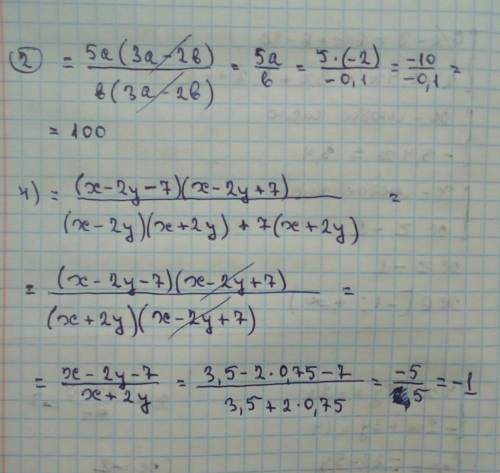 2) = 5a(3a-2b)/b(3a-2b) = 5a/b = 5·(-2)/-0,1 = -10/-0,1 =
= 100
4) = (x-2y-7)(x-2y+7)/(x-2y)(x+2y)+7(x+2y) =
= (x-2y-7)(x-2y+7)/(x+2y)(x-2y+7) =
= x-2y-7/x+2y = 3,5-2·0,75-7/3,5+2·0,75 = -5/5 = -1